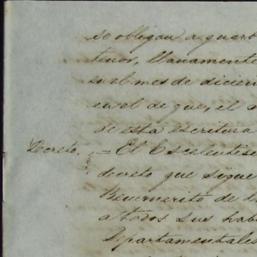 se obligan a guar
tenor, llanamente
en el mes de diciem
en el de que, el
de esta escritura
Decreto. — El Escelentisi
decreto que sigue
Benemerito de la
a todos sus hab
Departamentales